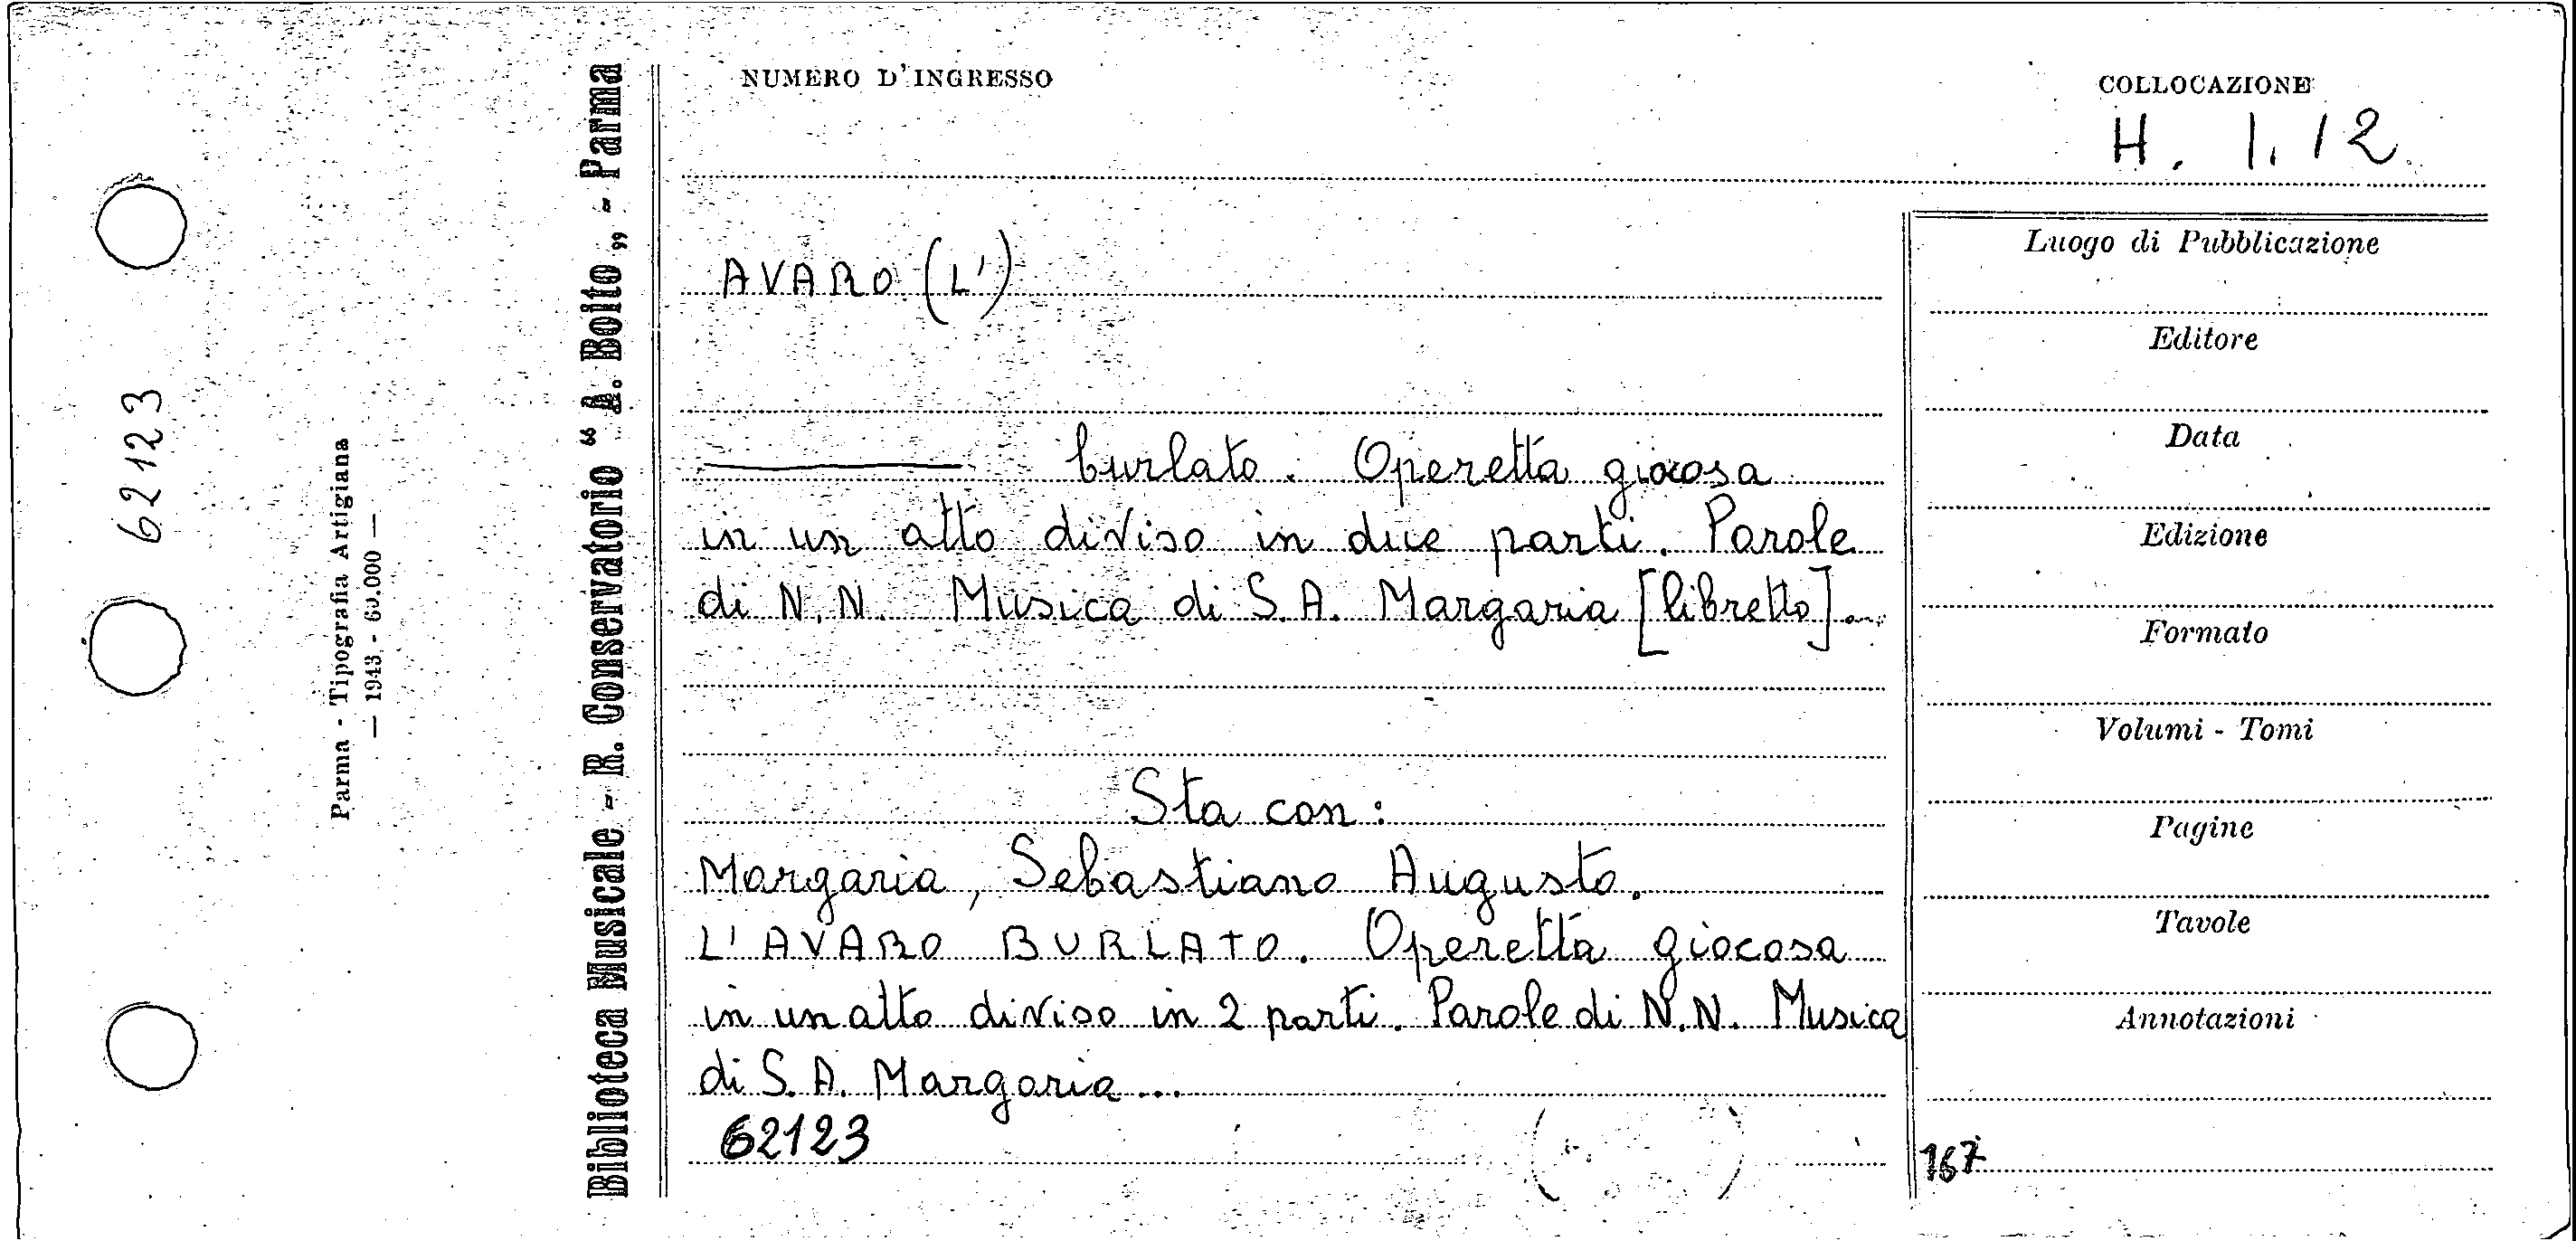 62123
Parma - Tipografia Artigiana
— 1943 - 60.000 —
Biblioteca Musicale - R. Conservatorio “ A. Boito „ - Parma
NUMERO D'INGRESSO
COLLOCAZIONE
H. 1. 12
AVARO (L')
——— burlato. Operetta giocosa
in un atto diviso in due parti. Parole
di N. N. Musica di S. A. Margaria [libretto].
Sta con:
Margaria, Sebastiano Augusto.
L'AVARO BURLATO. Operetta giocosa
in un atto diviso in 2 parti. Parole di N. N. Musica
di S. A. Margaria ...
62123
Luogo di Pubblicazione
Editore
Data
Edizione
Formato
Volumi - Tomi
Pagine
Tavole
Annotazioni
167